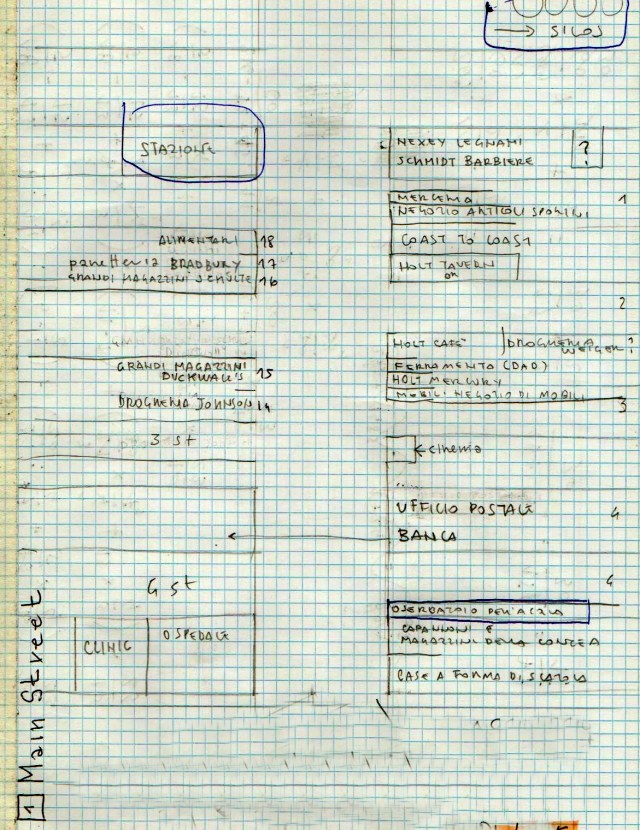 → SILOS
STAZIONE
NEXEY LEGNAMI
SCHMIDT BARBIERE
?
MERCERIA
NEGOZIO ARTICOLI SPORTIVI
1
COAST TO COAST
HOLT TAVERN
OK
ALIMENTARI 18
panetteria BRADBURY 17
GRANDI MAGAZZINI SCHULTE 16
2
HOLT CAFÈ
DROGHERIA
WEIGER ?
FERRAMENTO (DAD)
HOLT MERCURY
MOBILI NEGOZIO DI MOBILI
3
GRANDI MAGAZZINI
DUCKWALL'S 15
DROGHERIA JOHNSON 14
3 st
← cinema
UFFICIO POSTALE
4
BANCA
6 st
6
CLINIC
OSPEDALE
SERBATOIO DELL'ACQUA
CAPANNONI E
MAGAZZINI DELLA CONTEA
CASE A FORMA DI SCATOLA
1 Main Street